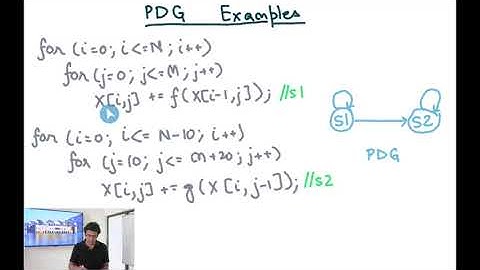 PDG Examples
for (i=0; i<=N; i++)
for (j=0; j<=M; j++)
X[i,j] += f(X[i-1,j]); //s1
for (i=0; i<=N-10; i++)
for (j=10; j<=M+20; j++)
X[i,j] += g(X[i,j-1]); //s2
S1 S2
PDG